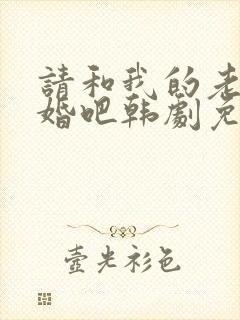 請和我的老
婚吧韩劇免
壺光衫色